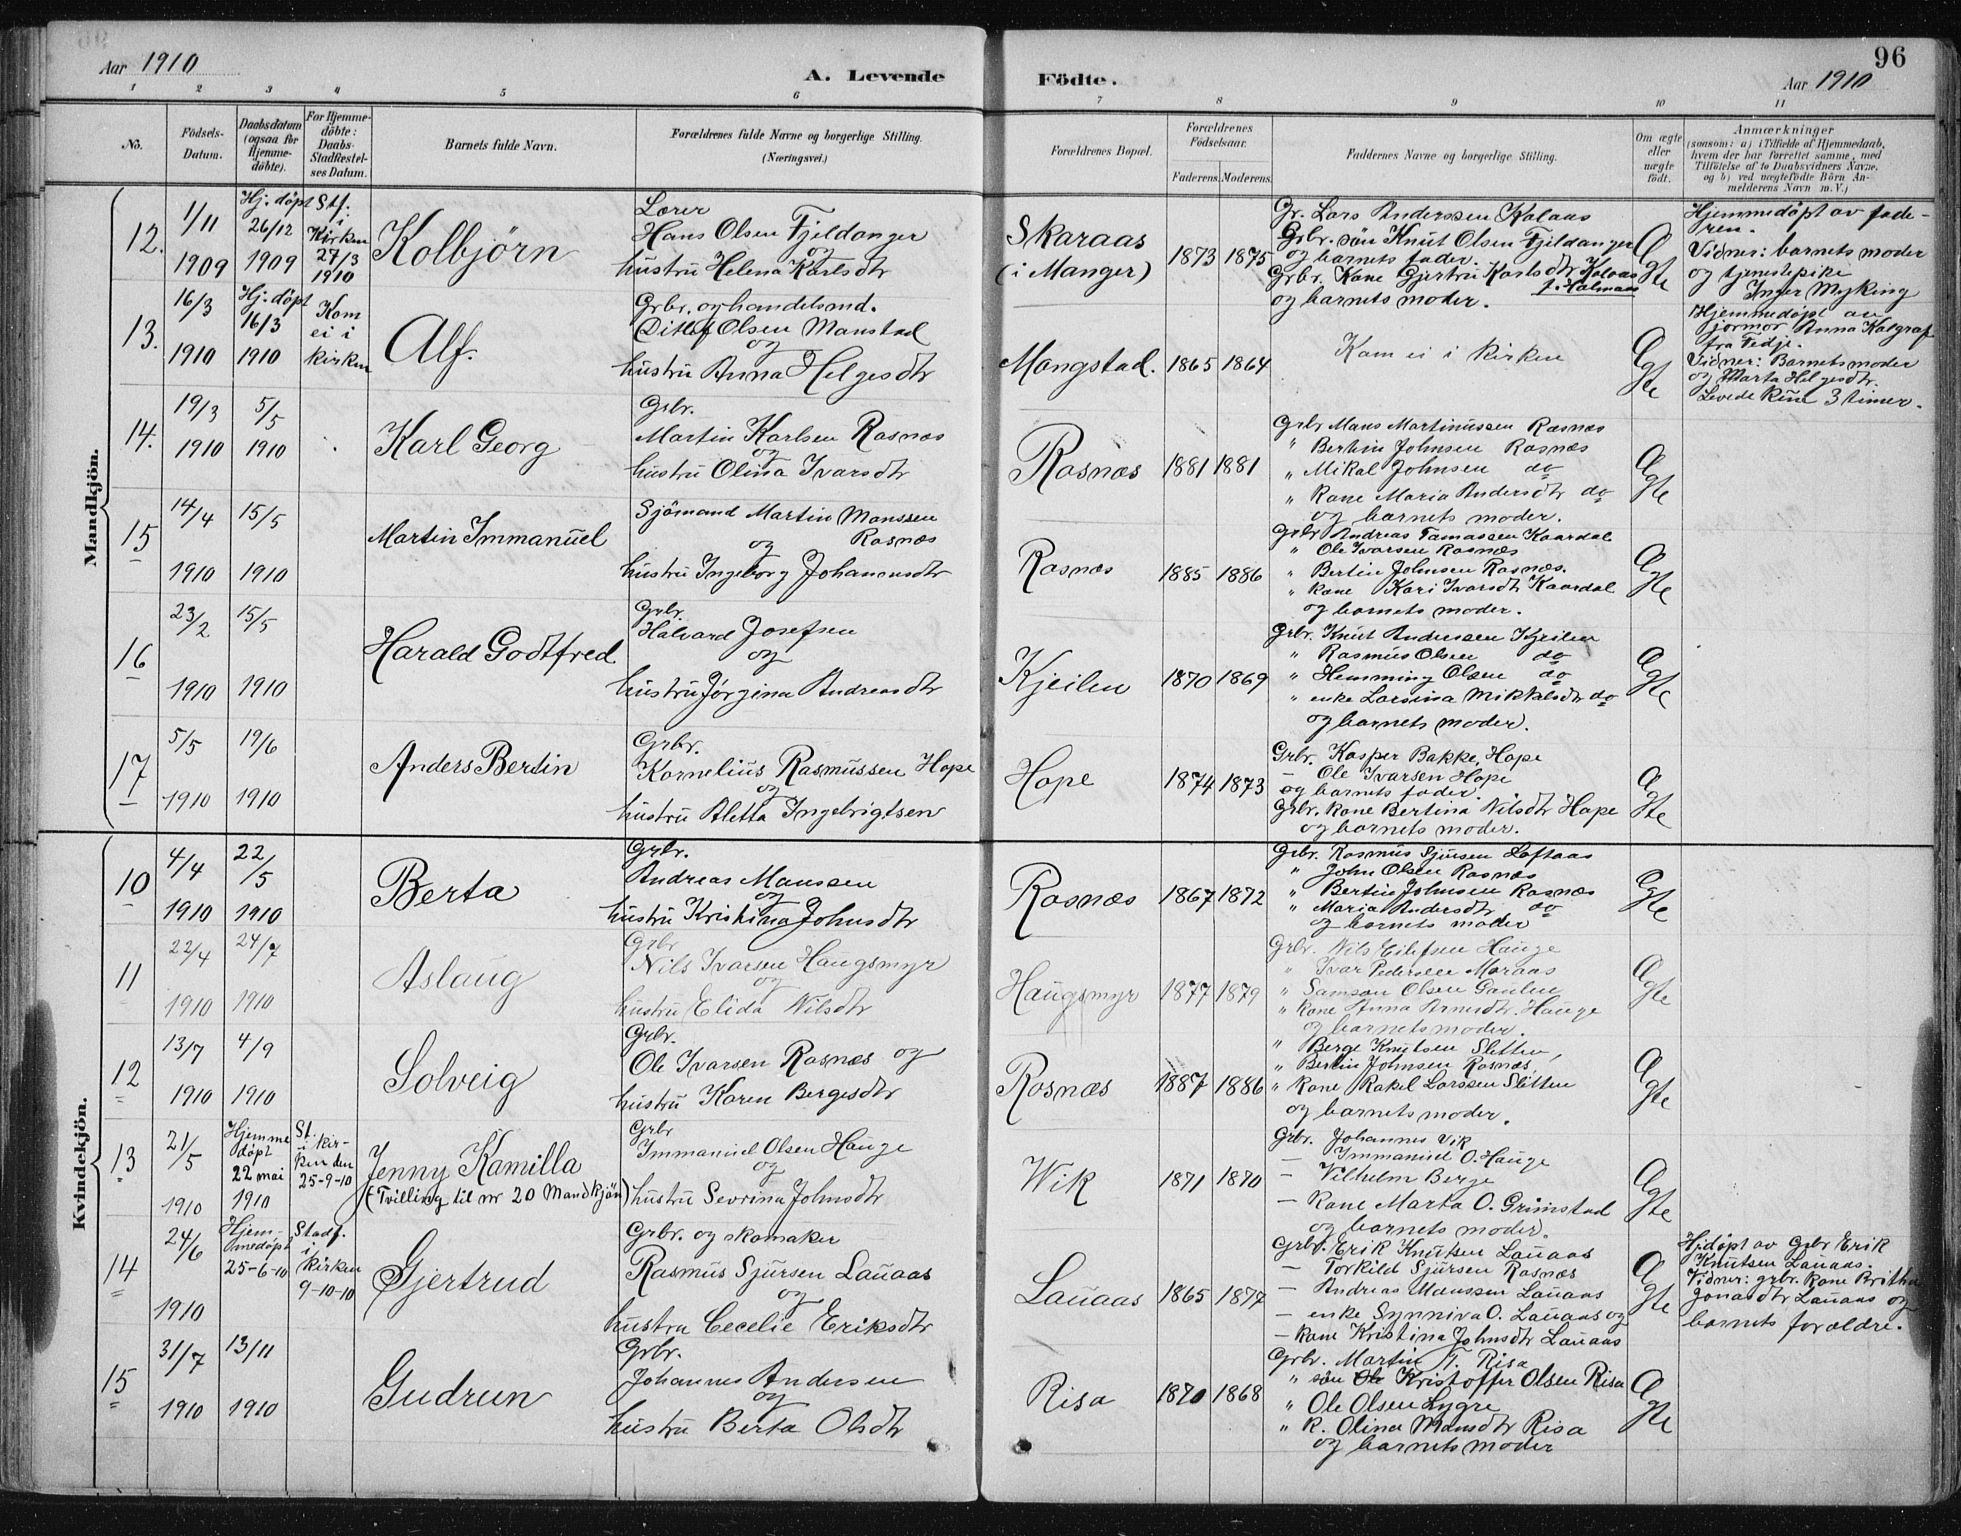 96
Aar 1910
A. Levende Födte.
Aar 1910
1 2 3 4 5 6 7 8 9 10 11
No.
Födsels-
Datum.
Daabsdatum
(ogsaa för
Hjemme-
döbte).
For Hjemme-
döbte:
Daabs-
Stadfestel-
ses Datum.
Barnets fulde Navn.
Forældrenes fulde Navne og borgerlige Stilling.
(Næringsvei.)
Forældrenes Bopæl.
Forældrenes
Födselsaar.
Faderens. Moderens.
Faddernes Navne og borgerlige Stilling.
Om ægte
eller
uægte
födt.
Anmærkninger
(saasom: a) i Tilfælde af Hjemmedaab,
hvem der har forrettet samme, med
Tilföielse af to Daabsvidners Navne,
og b) ved uægtefödte Börn An-
melderens Navn m. V.)
Mandkjön.
12.
1/11
1909
Hj. döpt
26/12
1909
Stf.
i
Kirken
27/3
1910
Kolbjörn
Lærer
Hans Olsen Fjeldanger
og
hustru Helena Karlsdtr
Skaraas
(i Manger)
1873 1875
Gr. Lars Anderssen Kalaas
Grbr. sön Knut Olsen Fjeldanger
og barnets fader.
Grbr. Kone Gjertru Karlsdtr Kalaas
f. Halmaas
og barnets moder.
Ægte
Hjemmedöpt av fade-
ren.
Vidner: barnets moder
og tjenestepike
Inger Myking
13.
16/3
1910
Hj. döpt
16/3
1910
Kom
ei i
kirken
Alf.
Grbr. og handelsmd.
Ditlef Olsen Manstad
og
hustru Anna Helgesdtr
Mangstad.
1865 1864
Kom ei i kirken
Ægte
Hjemmedöpt av
jormor Anna Kalgraf
fra Fedje.
Vidner: Barnets moder
og Marta Helgesdtr.
Levede kun 3 timer.
14.
19/3
1910
5/5
1910
Karl Georg
Grbr.
Martin Karlsen Rosnæs
og
hustru Olina Ivarsdtr
Rosnæs
1881 1881
Grbr Mans Martinussen Rosnæs
" Bertin Johnsen Rosnæs
" Mikal Johnsen do
" Kone Maria Andersdtr do
og barnets moder.
Ægte
15
14/4
1910
15/5
1910
Martin Immanuel
Sjömand Martin Monssen
og Rosnæs
hustru Ingeborg Johannesdtr
Rosnæs
1885 1886
Grbr Andreas Tamassen Kaardal
" Ole Ivarsen Rosnæs
" Bertin Johnsen Rosnæs.
" kone Kari Ivarsdtr Kaardal
og barnets moder.
Ægte
16
23/2
1910
15/5
1910
Harald Godtfred
Grbr.
Halvard Josefsen
og
hustru Jørgina Andreasdtr
Kjeilen
1870 1869
Grbr. Knut Anderssen Kjeilen
" Rasmus Olsen do
" Hemming Olsen do
" enke Larsina Mikkalsdtr do
og barnets moder.
Ægte
17
5/5
1910
19/6
1910
Anders Bertin
Grbr.
Kornelius Rasmussen Hope
og
hustru Aletta Ingebrigtsen
Hope
1874 1873
Grbr. Kasper Bakke, Hope
— Ole Ivarsen Hope
og barnets fader.
Grbr. kone Bertina Nilsdtr Hope
og barnets moder.
Ægte
Kvindekjön.
10
4/4
1910
22/5
1910
Berta
Grbr.
Andreas Manssen
og
hustru Kristina Johnsdtr
Rosnæs
1867 1872
Grbr. Rasmus Sjursen Loftaas
" John Olsen Rosnæs
" Bertin Johnsen Rosnæs
" Maria Andersdtr do
og barnets moder
Ægte
11
22/4
1910
24/7
1910
Aslaug
Grbr
Nils Ivarsen Haugsmyr
og
hustru Elida Nilsdtr
Haugsmyr
1877 1879
Grbr. Nils Eilefsen Hauge
" Ivar Pedersen Maraas
" Samson Olsen Gaulen
" kone Anna Arnesdtr. Hauge
og barnets moder.
Ægte
12
13/7
1910
4/9
1910
Solveig
Grbr.
Ole Ivarsen Rosnæs og
hustru Karen Bergesdtr
Rosnæs
1887 1886
" Berge Knutsen Sletten,
" Bertin Johnsen Rosnæs,
" kone Rakel Larssen Sletten
og barnets moder.
Ægte
13
21/5
1910
Hjemme
döpt
22 mai
1910
St.
i kir-
ken den
25-9-10
Jenny Kamilla
(Tvilling til nr 20 Mandkjön)
Grbr
Immanuel Olsen Hauge
og
hustru Sevrina Johnsdtr
Wik
1871 1870
Grbr. Johannes Vik
— Immanuel O. Hauge
— Vilhelm Berge
— kone Marta O. Grimstad
og barnets moder.
Ægte
14
24/6
1910
Hjem-
medöpt
25-6-10
Stadf.
i
Kirken
9-10-10
Gjertrud
Grbr. og skomaker
Rasmus Sjursen Lauaas
og
hustru Cecelie Eriksdtr
Lauaas
1865 1877
Grbr. Erik Knutsen Lauaas
— Torkild Sjursen Rosnæs
— Andreas Manssen Lauaas
— enke Synniva O. Lauaas og
— kone Kristina Johnsdtr Lauaas
Ægte
Hjdöpt av Grbr Erik
Knutsen Lauaas.
Vidner: grbr. kone Britha
Jonasdtr Lauaas og
barnets forældre.
15
31/7
1910
13/11
1910
Gudrun
Grbr.
Johannes Andersen
og
hustru Berta Olsdtr
Risa
1870 1868
Grbr. Martin T. Risa
" sön Ole Kristoffer Olsen Risa
" Ole Olsen Lygre
" K. Olina Mansdtr Risa
og barnets moder
Ægte